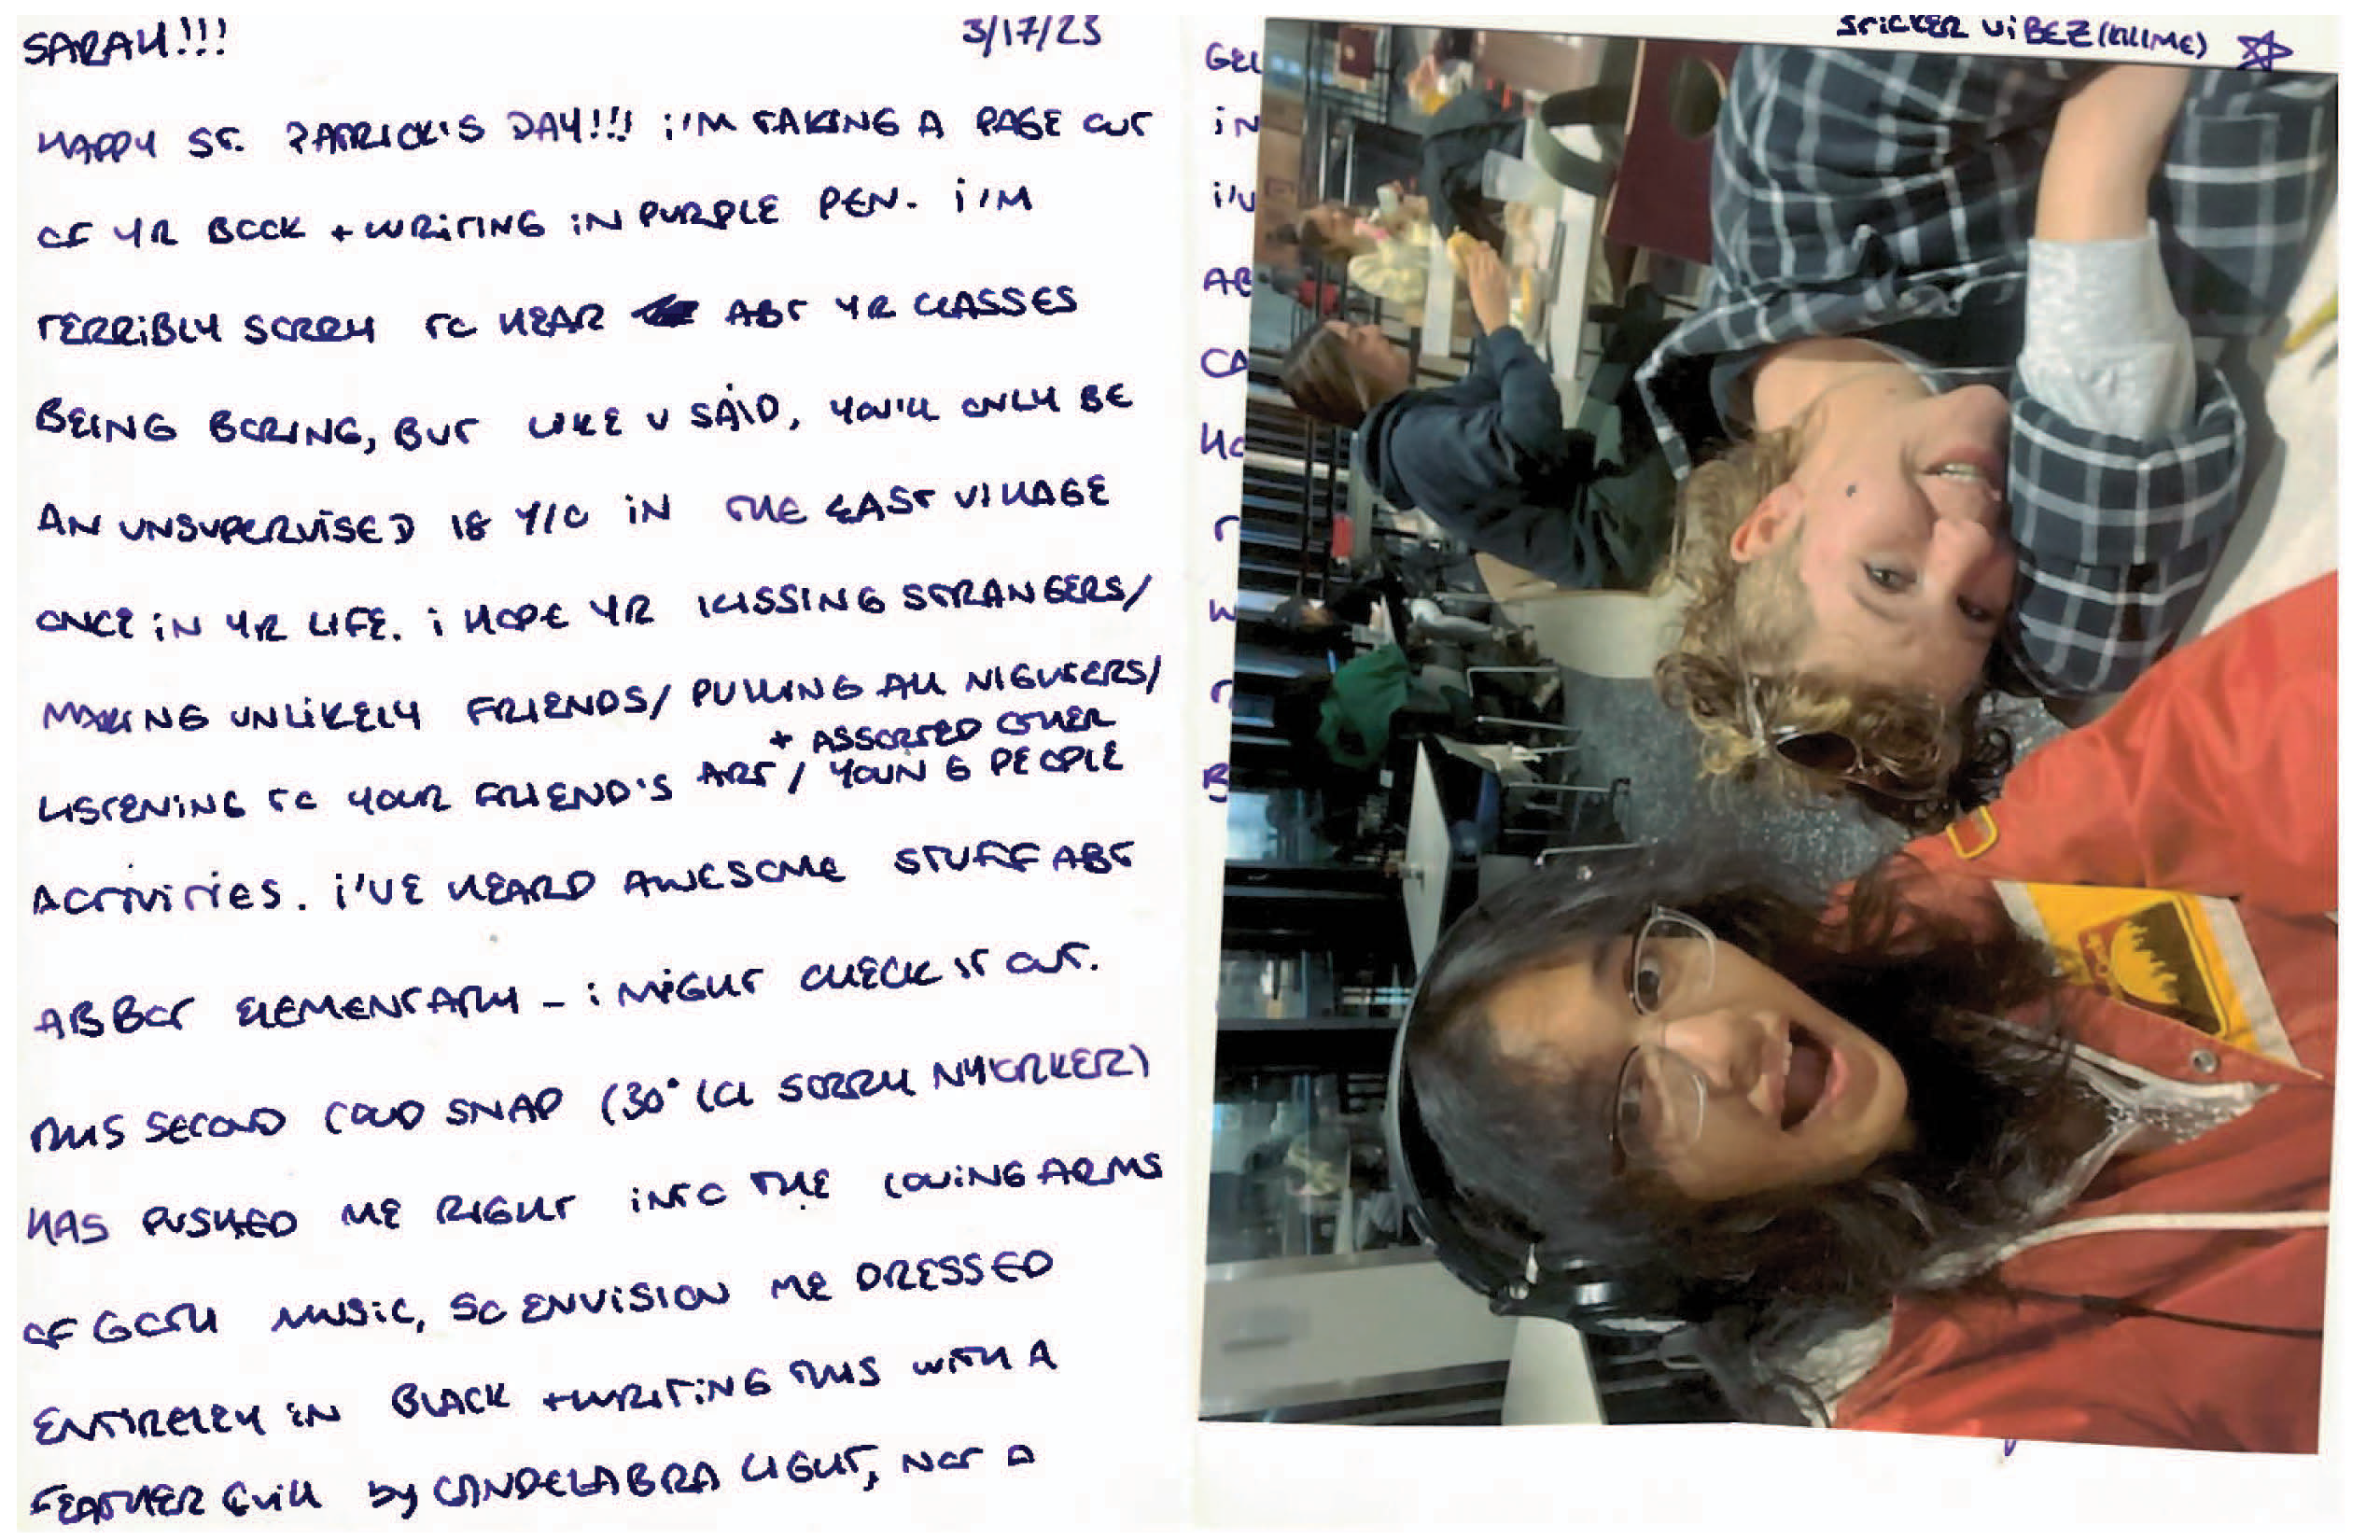 SARAH!!! 3/17/23
HAPPY ST. PATRICK'S DAY!!! i'M TAKING A PAGE OUT
OF YR BOOK + WRiTiNG iN PURPLE PEN. i'M
TERRiBLY SORRY TO HEAR ABT YR CLASSES
BEING BORING, BUT LIKE U SAID, YOU'LL ONLY BE
AN UNSUPERVISED 18 Y/O iN THE EAST VILLAGE
ONCE iN YR LIFE. i HOPE YR KISSING STRANGERS/
MAKING UNLiKELY FRIENDS/ PULLING ALL NIGHTERS/
+ ASSORTED OTHER
LISTENiNG TO YOUR FRIEND'S ART / YOUNG PEOPLE
ACTiViTiES. i'VE HEARD AWESOME STUFF ABT
ABBOT ELEMENTARY - i MiGHT CHECK IT OUT.
THIS SECOND COLD SNAP (30° LOL SORRY NYORKER)
HAS PUSHED ME RIGHT iNTO THE LOViNG ARMS
OF GOTH MUSiC, SO ENViSION ME DRESSED
ENTIRELEY iN BLACK +WRITiNG THIS WITH A
FEATHER QUILL by CANDELABRA LIGHT, NOT A
STICKER ViBEZ (KILL ME)
GEL
iN
i'V
AB
CA
HO
T
W
T
B